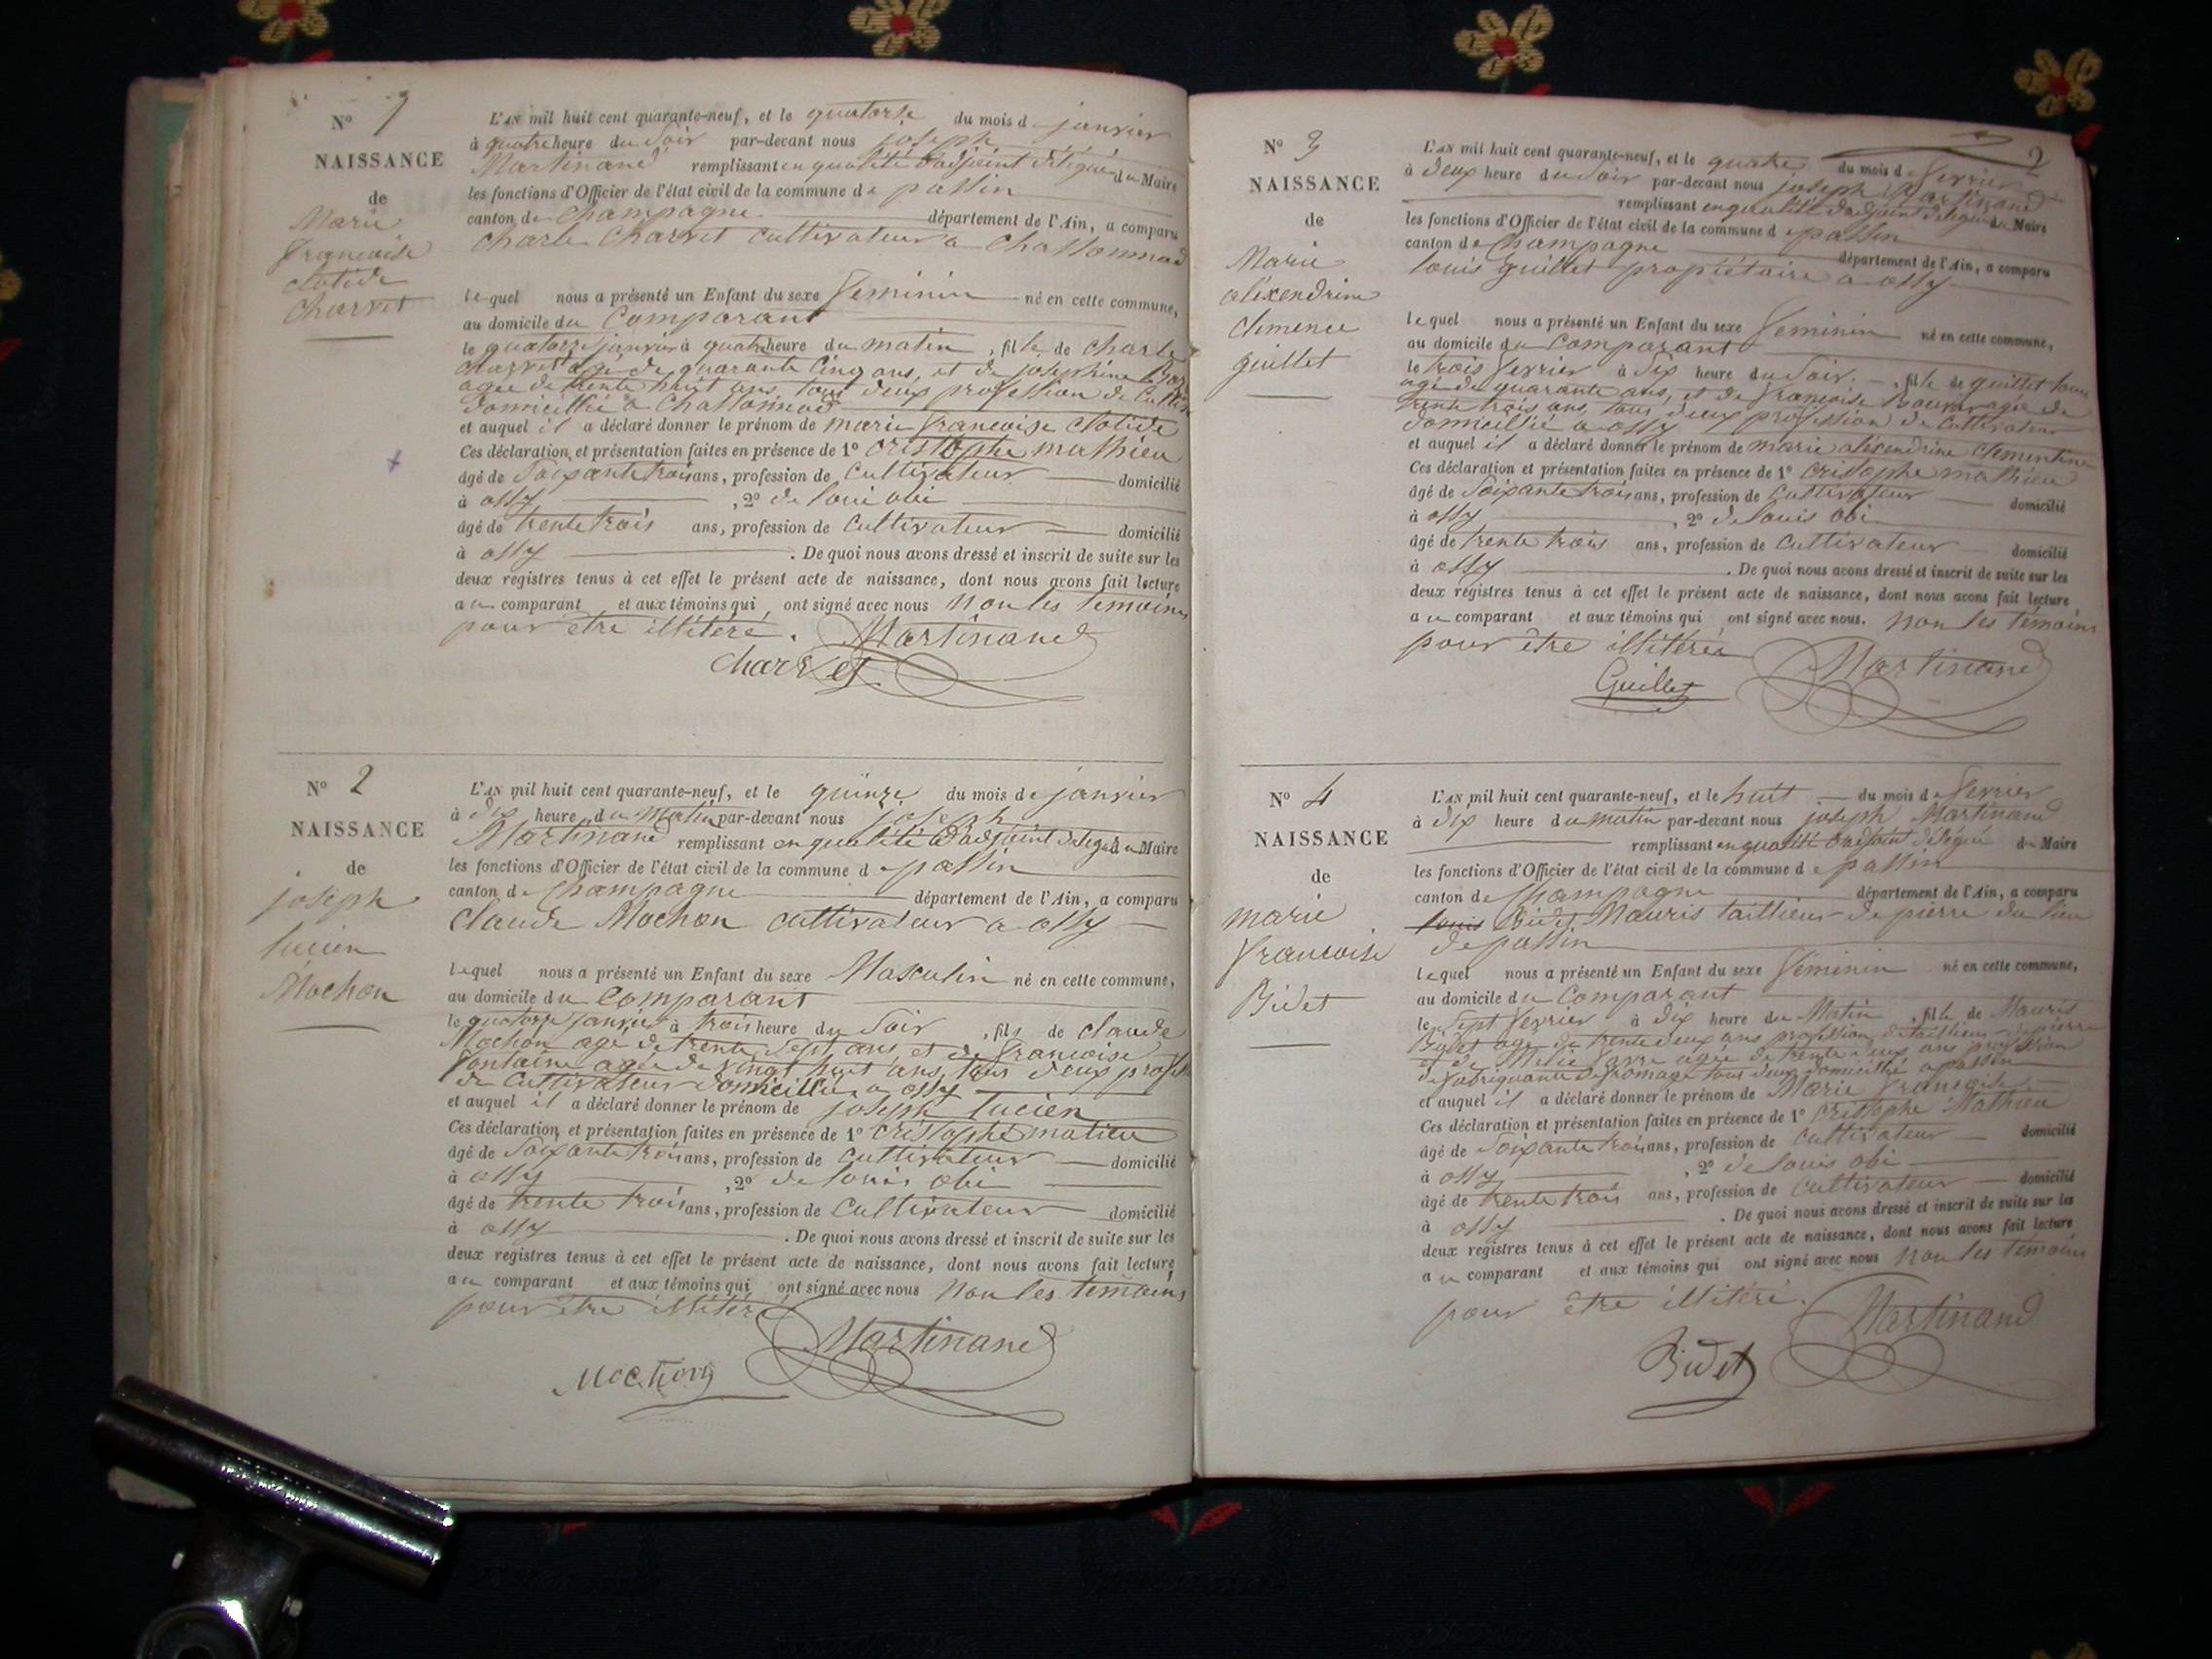 N° 1
NAISSANCE
de
Marie
francoise
clotide
Charvet
L'AN mil huit cent quarante-neuf, et le quatorse du mois d janvier
à quatre heure du Soir par-devant nous joseph
Martinand remplissant en qualité d'adjoint délégué du Maire
les fonctions d'Officier de l'état civil de la commune de passin
canton de Champagne département de l'Ain, a comparu
Charle Charvet cultivateur a Chassonnad
lequel nous a présenté un Enfant du sexe feminin né en cette commune,
au domicile du Comparant
le quatorze janvier à quatre heure du matin, fille de Charle
Charvet agé de quarante Cinq ans, et de josephine
agée de trente huit ans, tous deux profession de
domicillié a Chassonnad
et auquel il a déclaré donner le prénom de marie francoise Clotide
Ces déclaration et présentation faites en présence de 1° Cristophe mathieu
âgé de Soixante trois ans, profession de Cultivateur domicilié
à ossy, 2° de loui obi
âgé de trente trois ans, profession de Cultivateur domicilié
à ossy. De quoi nous avons dressé et inscrit de suite sur les
deux registres tenus à cet effet le présent acte de naissance, dont nous avons fait lecture
au comparant et aux témoins qui ont signé avec nous Non les temoins
pour être illitéré. Martinand
Charvet
N° 2
NAISSANCE
de
joseph
lucien
Mochon
L'AN mil huit cent quarante-neuf, et le quinze du mois de janvier
à dix heure du Matin par-devant nous joseph
Martinand remplissant en qualité d'adjoint délegué du Maire
les fonctions d'Officier de l'état civil de la commune de passin
canton de Champagne département de l'Ain, a comparu
Claude Mochon cultivateur a ossy
lequel nous a présenté un Enfant du sexe Masculin né en cette commune,
au domicile du Comparant
le quatorze janvier à trois heure du Soir, fils de claude
Mochon agé de trente sept ans, et de francoise
fontaine agée de vingt huit ans, tous deux
de Cultivateur domicillié a ossy
et auquel il a déclaré donner le prénom de joseph lucien
Ces déclaration et présentation faites en présence de 1° Cristophe matieu
âgé de Soixante trois ans, profession de Cultivateur domicilié
à ossy, 2° de louis obi
âgé de trente trois ans, profession de Cultivateur domicilié
à ossy. De quoi nous avons dressé et inscrit de suite sur les
deux registres tenus à cet effet le présent acte de naissance, dont nous avons fait lecture
au comparant et aux témoins qui ont signé avec nous Non les témoins
pour être illitéré Martinand
Mochon
2
N° 3
NAISSANCE
de
Marie
aléxendrine
Clemence
guillet
L'AN mil huit cent quarante-neuf, et le quatre du mois de fevrier
à deux heure du Soir par-devant nous joseph Martinand
remplissant en qualité d'adjoint délegué du Maire
les fonctions d'Officier de l'état civil de la commune d e passin
canton de Champagne département de l'Ain, a comparu
louis guillet propiétaire a ossy
lequel nous a présenté un Enfant du sexe feminin né en cette commune,
au domicile du Comparant
le trois fevrier à dix heure du Soir, fille de guillet louis
agé de quarante ans, et de francoise agée de
trente trois ans, tous deux profession de Cultivateur
domicillié a ossy
et auquel il a déclaré donner le prénom de marie aléxendrine Clementine
Ces déclaration et présentation faites en présence de 1° Cristophe mathieu
âgé de Soixante trois ans, profession de Cultivateur domicilié
à ossy, 2° de louis obi
âgé de trente trois ans, profession de Cultivateur domicilié
à ossy. De quoi nous avons dressé et inscrit de suite sur les
deux registres tenus à cet effet le présent acte de naissance, dont nous avons fait lecture
au comparant et aux témoins qui ont signé avec nous. Non les témoins
pour être illitéré
Guillet Martinand
N° 4
NAISSANCE
de
marie
francoise
Bidet
L'AN mil huit cent quarante-neuf, et le huit du mois de fevrier
à dix heure du matin par-devant nous joseph Martinand
remplissant en qualité d'adjoint délégué du Maire
les fonctions d'Officier de l'état civil de la commune d e passin
canton de Champagne département de l'Ain, a comparu
louis Bidet Mauris taillieur de pierre du lieu
de passin
lequel nous a présenté un Enfant du sexe féminin né en cette commune,
au domicile du Comparant
le Sept fevrier à dix heure du Matin, fille de Mauris
Bidet agé de trente deux ans profession de taillieur de pierre
et de agée de trente deux ans profession
de fabriquante de fromage tous deux domicillié a passin
et auquel il a déclaré donner le prénom de Marie francoise
Ces déclaration et présentation faites en présence de 1° Cristophe Mathieu
âgé de Soixante trois ans, profession de Cultivateur domicilié
à ossy, 2° de louis obi
âgé de trente trois ans, profession de Cultivateur domicilié
à ossy. De quoi nous avons dressé et inscrit de suite sur les
deux registres tenus à cet effet le présent acte de naissance, dont nous avons fait lecture
au comparant et aux témoins qui ont signé avec nous Non les témoins
pour être illitéré. Martinand
Bidet